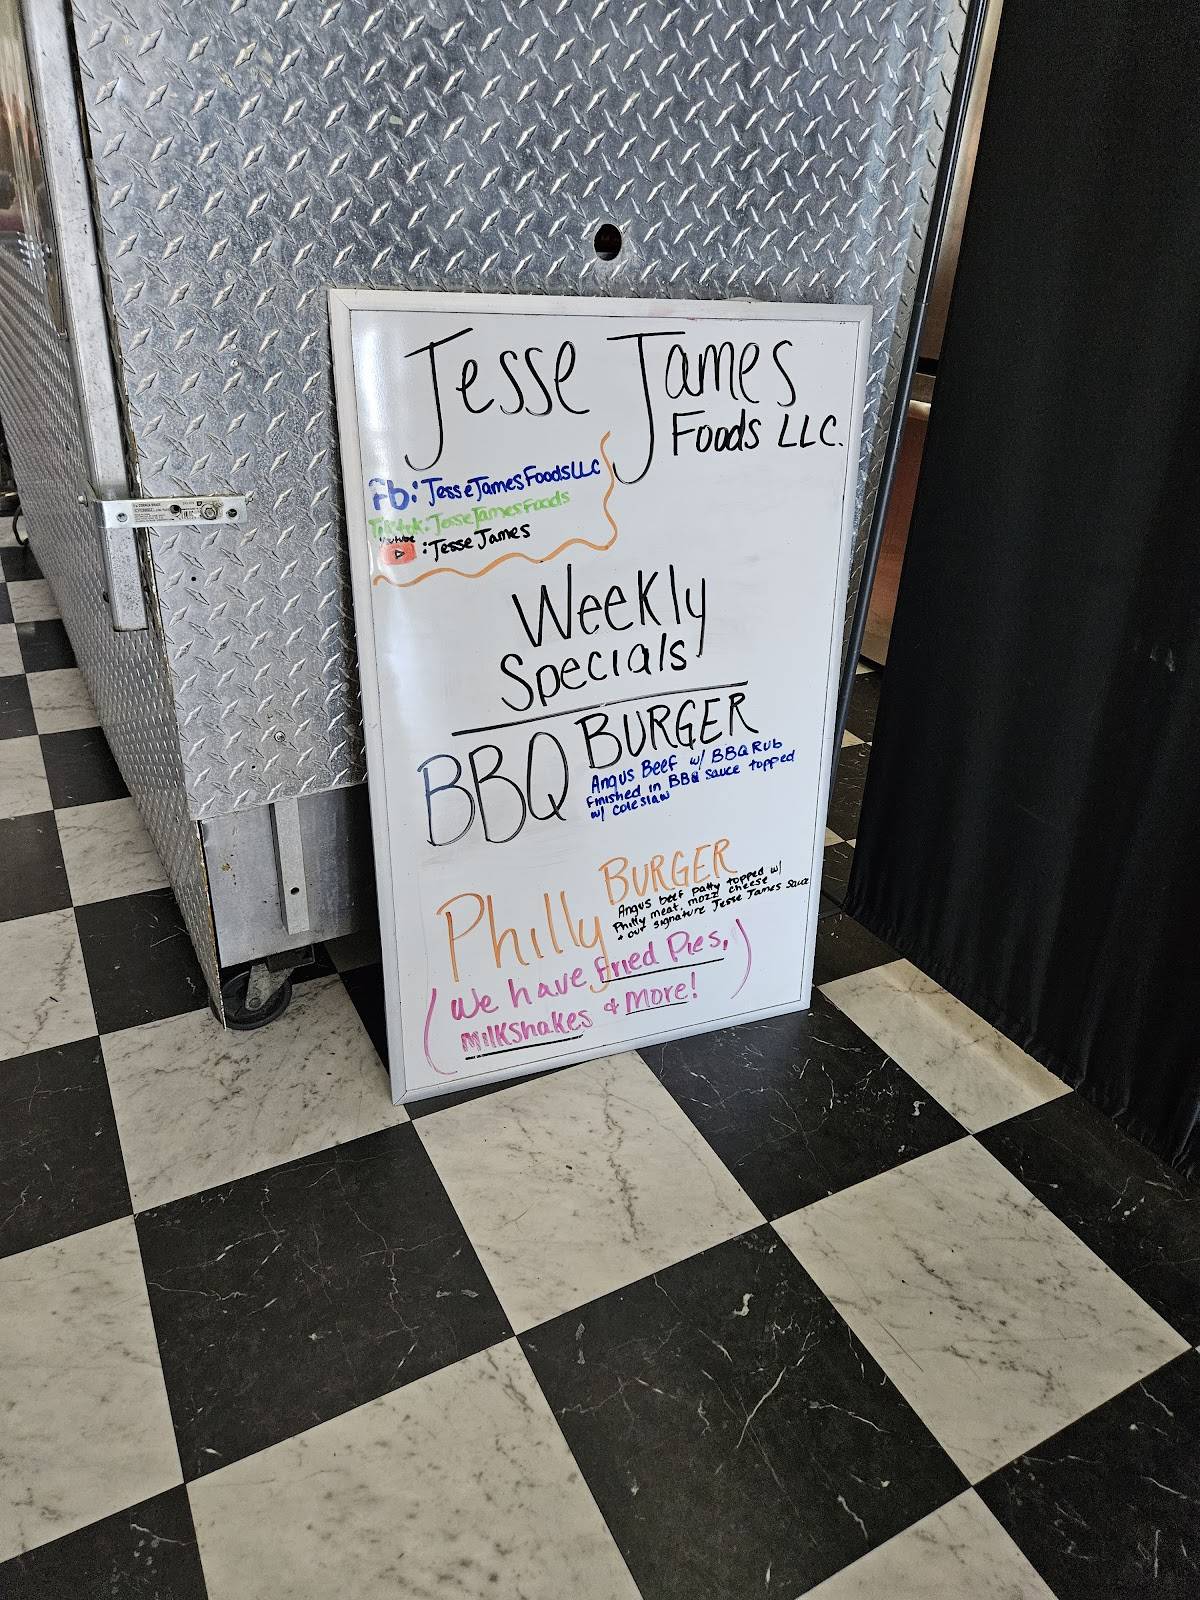 Jesse James
Foods LLC.
Fb: JesseJamesFoodsLLC
Tiktok: JesseJamesFoods
Youtube
: Jesse James
Weekly
Specials
BBQ BURGER
Angus Beef w/ BBQ Rub
finished in BBQ sauce topped
w/ coleslaw
Philly BURGER
Angus beef patty topped w/
Philly meat, mozz cheese
+ our signature Jesse James sauce
(We have Fried Pies,
Milkshakes & More!)